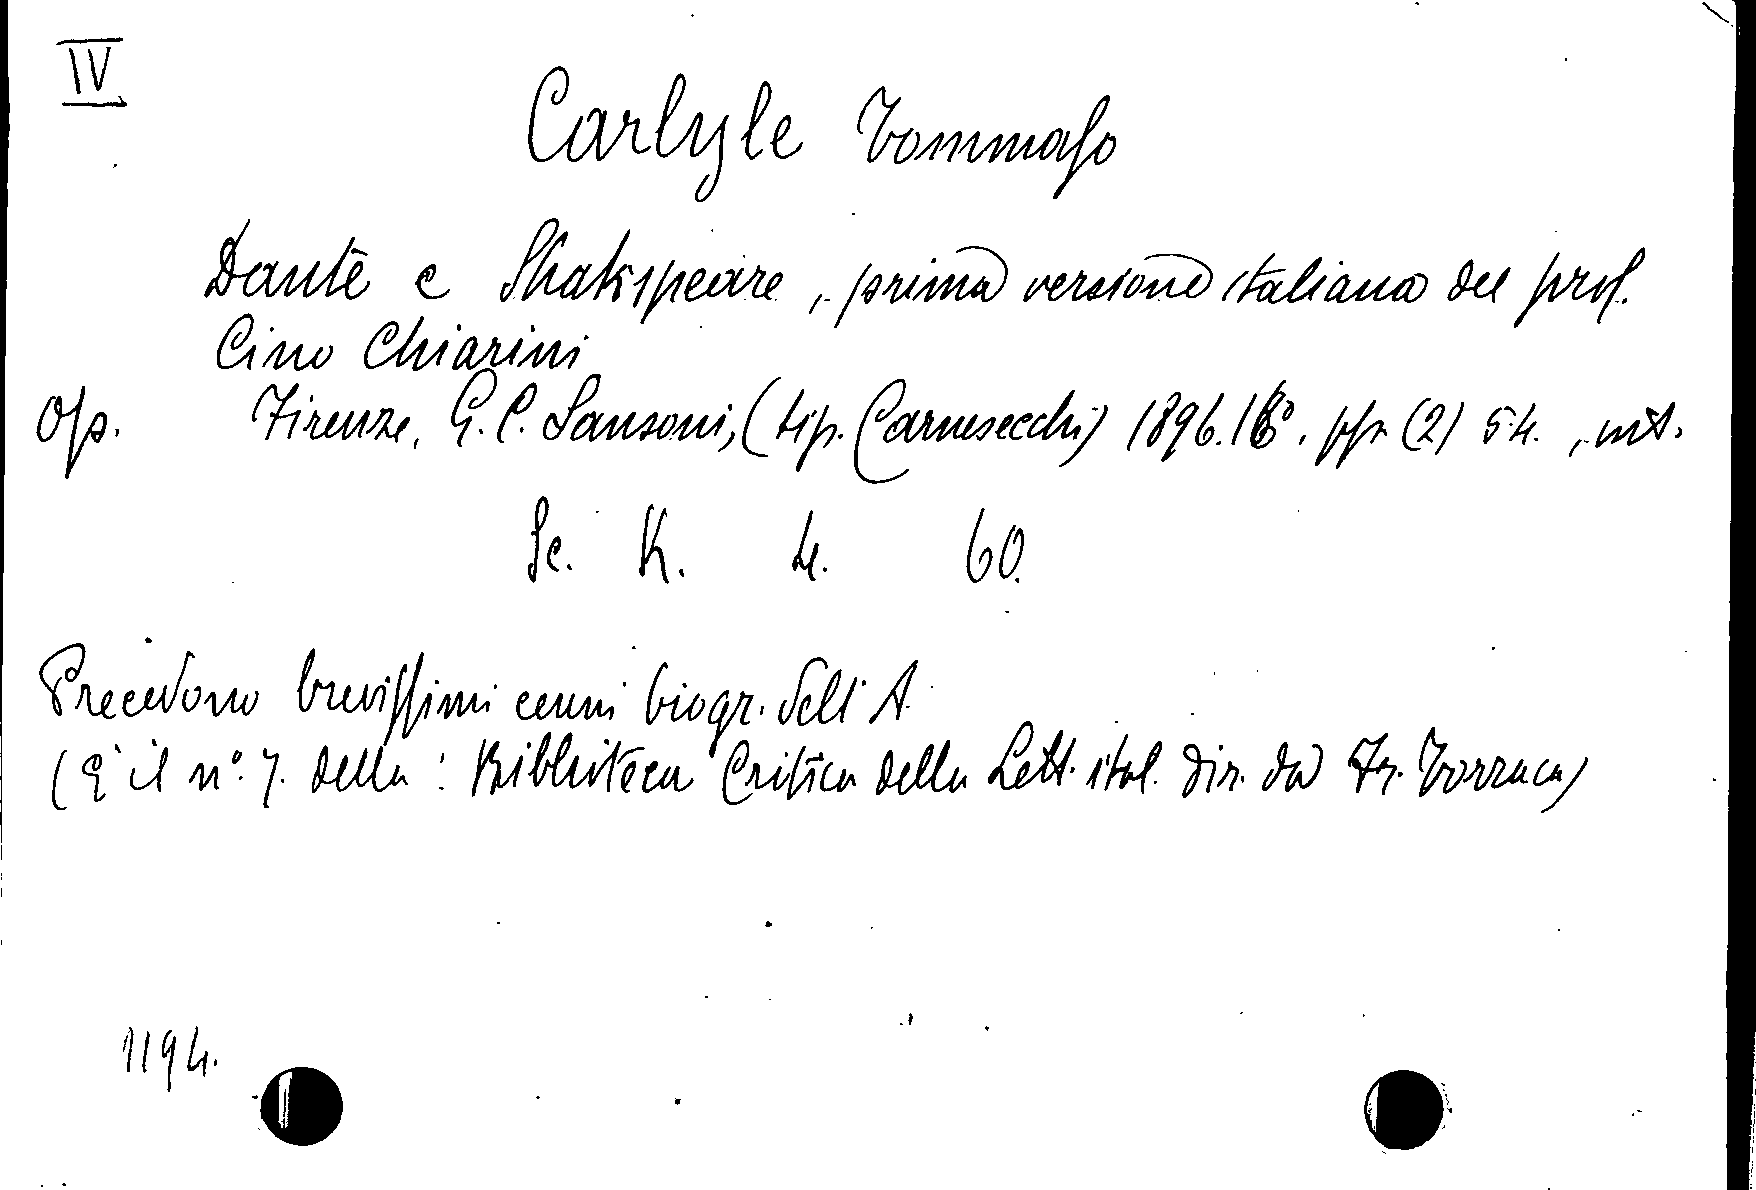 IV
Carlyle Tommaso
Dante e Shakspeare, prima versione italiana del prof.
Cino Chiarini
Op. Firenze, G. C. Sansoni, (tip. Carnesecchi) 1896. 16°. pp. (2) 54. , int.
Sc. K. 4. 60.
Precedono brevissimi cenni biogr. dell'A.
(E' il n°. 7. della: Biblioteca Critica della Lett. ital. dir. da Fr. Torraca)
1194.